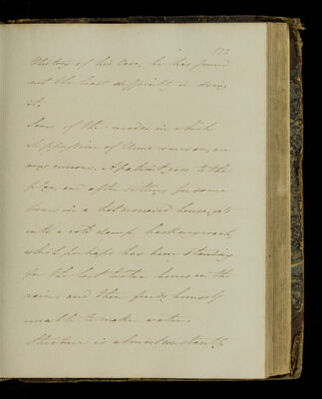 122
History of his Case, he has found
not the least difficulty in doing
it.
Some of the modes in which
Suppression of Urine comes on, are
very curious. A patient goes to the
play and after sitting for some
hours in a hot crowded house, gets
into a cold damp hackney coach,
which perhaps has been standing
for the last twelve hours in the
rain, and then finds himself
unable to make water.
Stricture is almost constantly